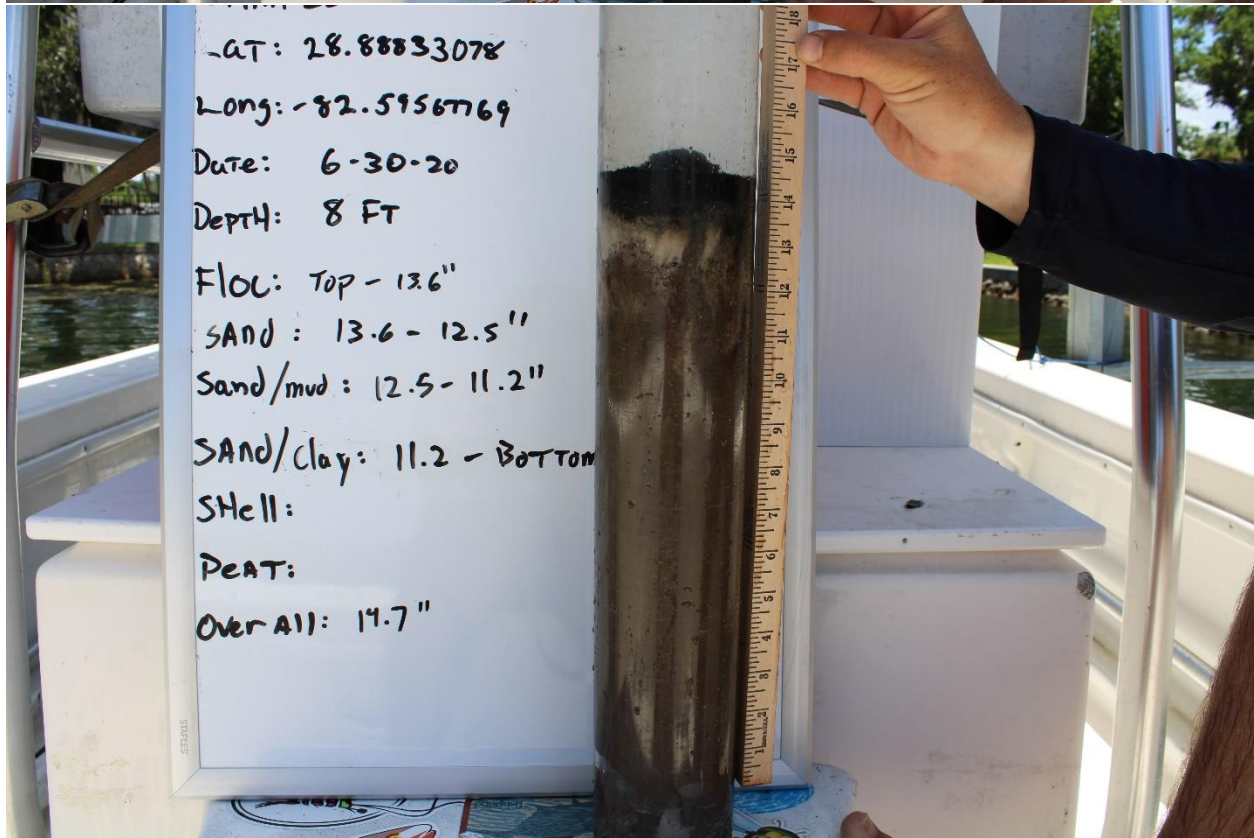 Lat: 28.88833078
Long: -82.59567769
Date: 6-30-20
Depth: 8 FT
Floc: Top - 13.6"
SAnd: 13.6 - 12.5"
Sand/mud: 12.5 - 11.2"
SAnd/Clay: 11.2 - BOTTOM
SHell:
PeAT:
Over All: 14.7"
STAPLES
18
17
16
15
14
13
12
11
10
9
8
7
6
5
4
3
2
1